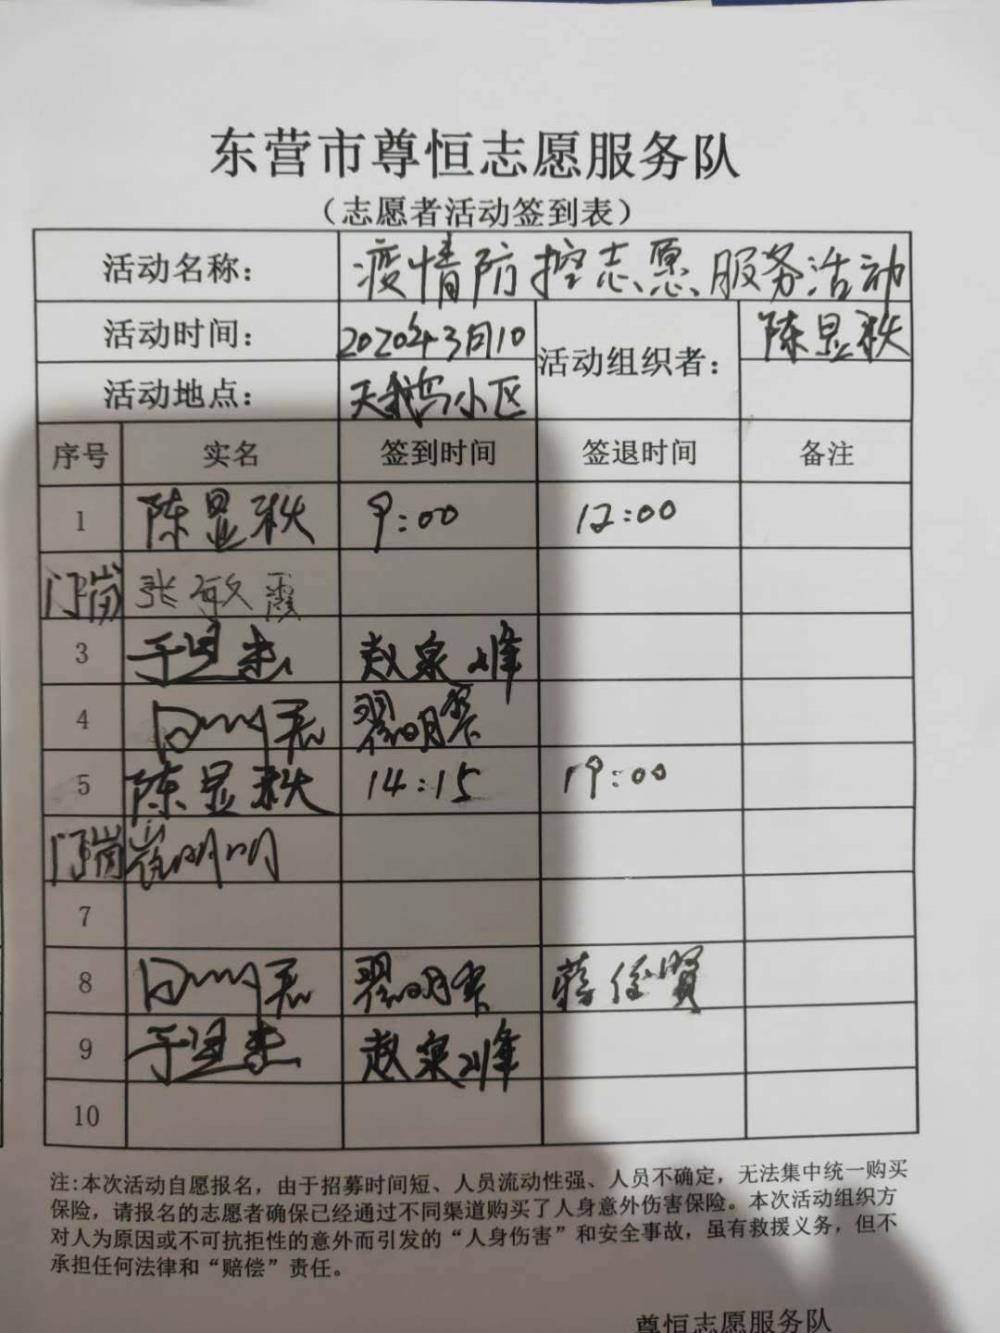 东营市尊恒志愿服务队
（志愿者活动签到表）
活动名称： 疫情防控志愿服务活动
活动时间： 2020年3月10 活动组织者： 陈显秩
活动地点： 天鹅小区
序号 实名 签到时间 签退时间 备注
1 陈显秩 9:00 12:00
门岗 张敏霞
3 赵泉峰
4 翟明
5 陈显秩 14:15 19:00
门岗 崔明明
7
8 翟明 蒋俊贤
9 赵泉峰
10
注:本次活动自愿报名，由于招募时间短、人员流动性强、人员不确定，无法集中统一购买
保险，请报名的志愿者确保已经通过不同渠道购买了人身意外伤害保险。本次活动组织方
对人为原因或不可抗拒性的意外而引发的“人身伤害”和安全事故，虽有救援义务，但不
承担任何法律和“赔偿”责任。
尊恒志愿服务队